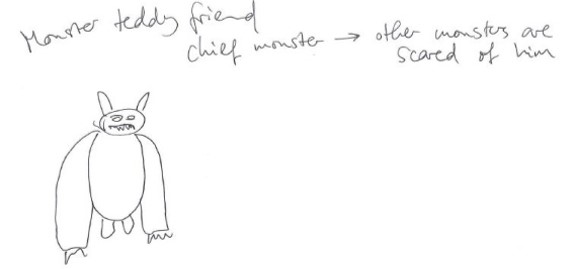 Monster teddy friend
chief monster → other monsters are
scared of him